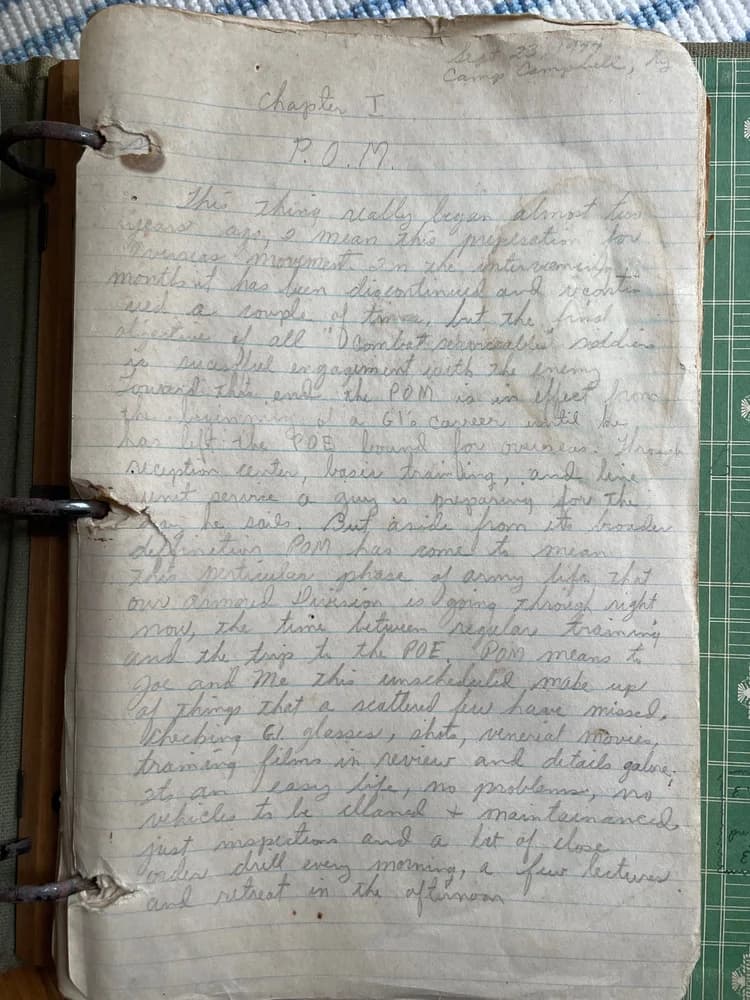 Sept 23, 1944
Camp Campbell, Ky
Chapter I
P.O.M.
This thing really began almost two
years ago, I mean this preperation for
Overseas movement. In the intervening
months it has been discontinued and recontin
ued a couple of times, but the final
objective of all "Combat serviceable" soldiers
is succesful engagement with the enemy
Toward this end the POM is in effect from
the beginning of a GI's career until he
has left the POE bound for overseas. Through
reception center, basic training, and line
unit service a guy is preparing for the
day he sails. But aside from its broader
deffinition POM has come to mean
this perticular phase of army life that
our armored Division is going through right
now, the time between regular training
and the trip to the POE. POM means to
Joe and Me this unscheduled make up
of things that a scattered few have missed,
checking GI glasses, shots, venerial movies,
training films in review and details galore;
its an easy life, no problems, no
vehicles to be cleaned + maintainanced,
just inspections and a lot of close
order drill every morning, a few lectures
and retreat in the afternoon